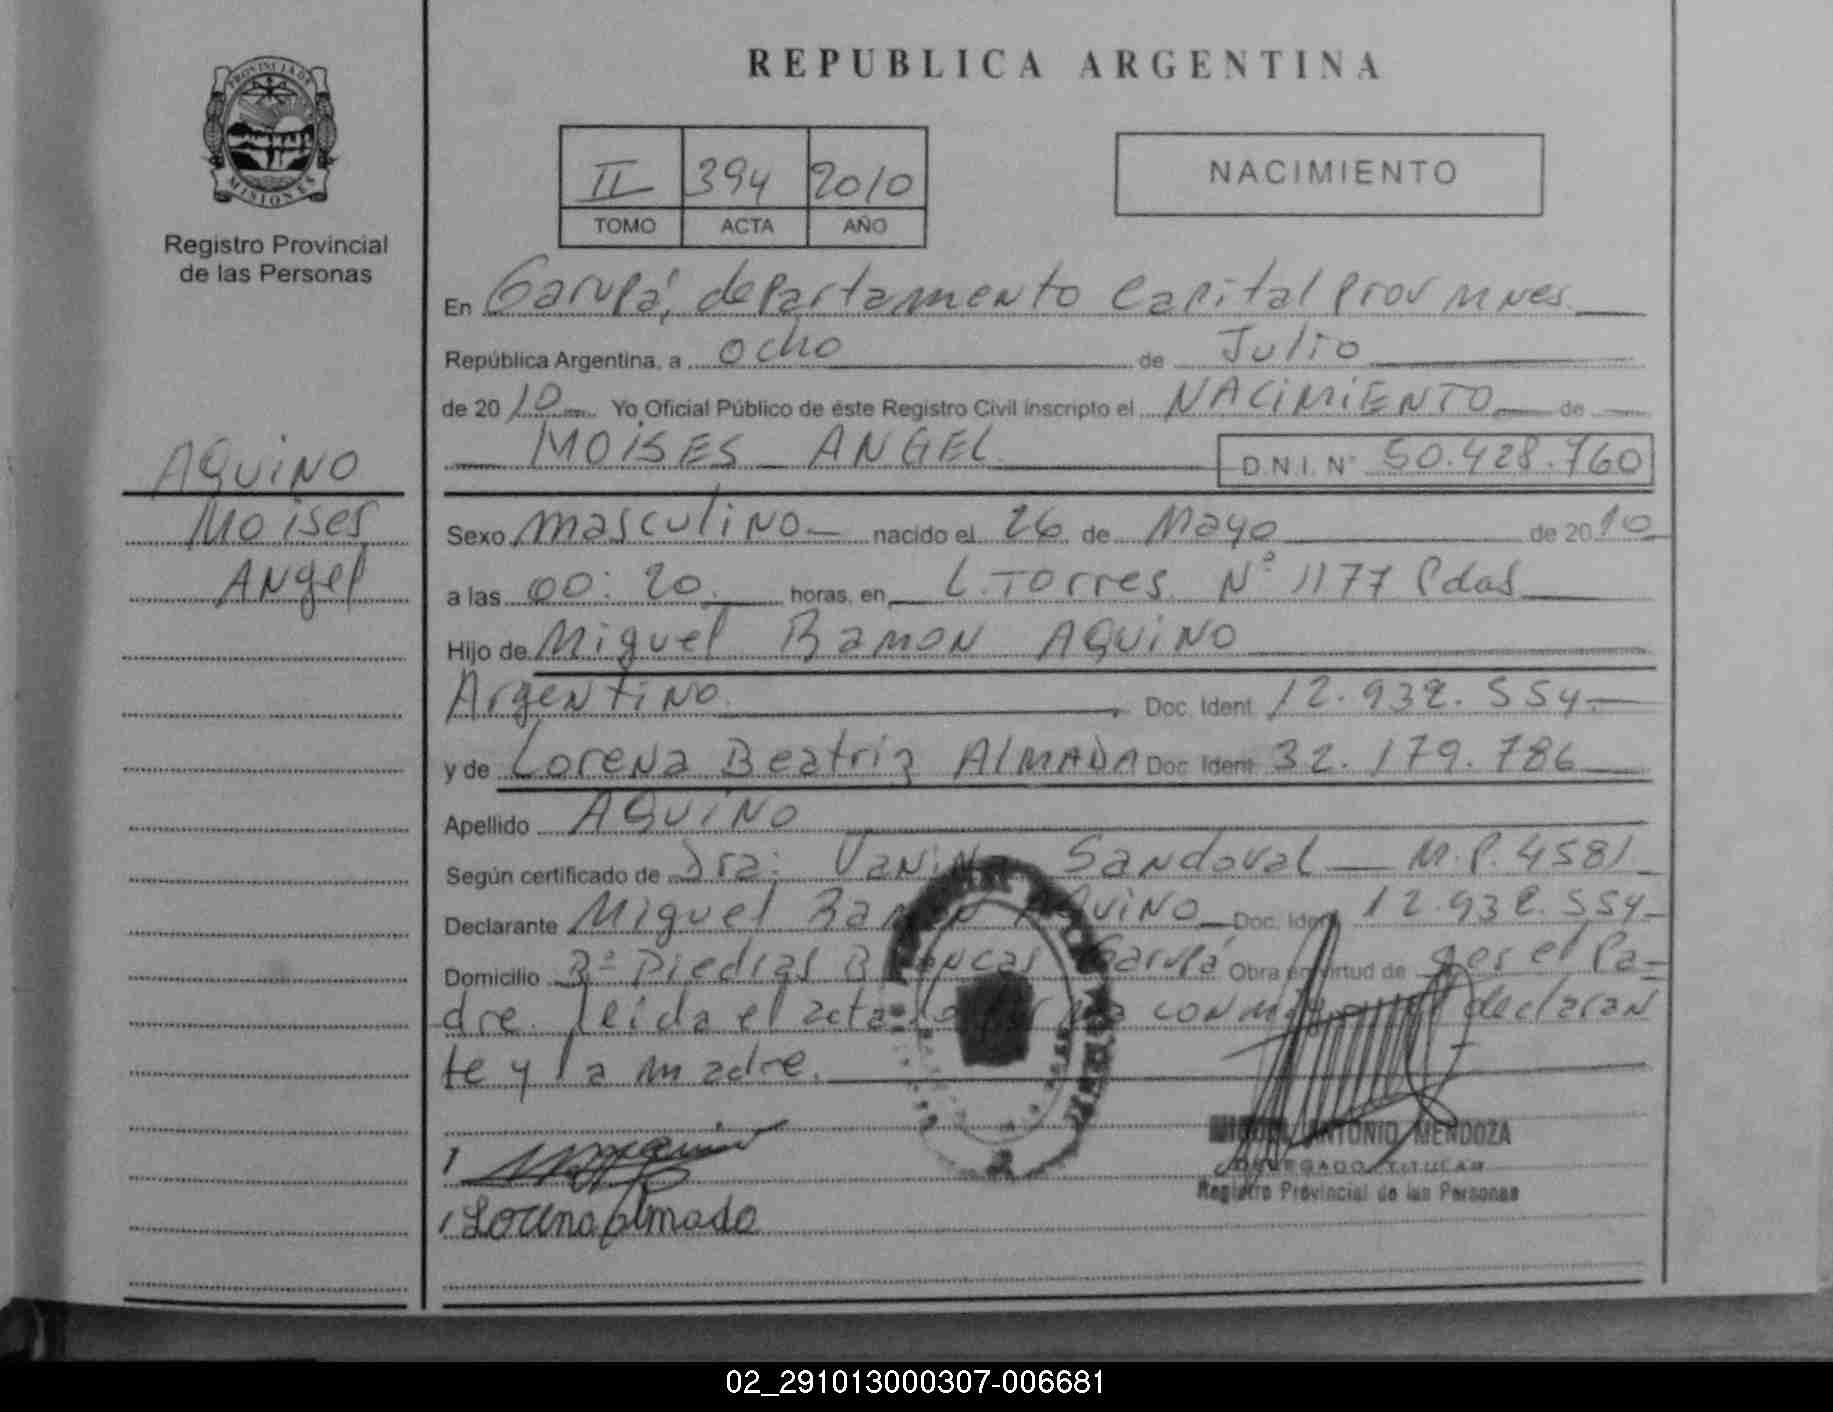 REPUBLICA ARGENTINA
PROVINCIA DE
MISIONES
Registro Provincial
de las Personas
II 394 2010
TOMO ACTA AÑO
NACIMIENTO
En Garupá, departamento Capital Prov Mnes.
República Argentina, a ocho de Julio
de 2010 Yo Oficial Público de éste Registro Civil inscripto el NACIMIENTO de
MOISES ANGEL D.N.I. N° 50.428.760
AQUINO
Moises
Angel
Sexo masculino nacido el 26 de Mayo de 2010
a las 00:20 horas, en L. Torres N° 1177 Pdas
Hijo de Miguel Ramon AQUINO
Argentino Doc. Ident. 12.932.554
y de Lorena Beatriz ALMADA Doc. Ident. 32.179.786
Apellido AQUINO
Según certificado de Dra: Vanina Sandoval M.P. 4581
Declarante Miguel Ramon AQUINO Doc. Ident. 12.932.554
Domicilio Bº Piedras Blancas Garupá Obra en virtud de ser el Pa-
dre. leída el acta la firma conmigo el declaran
te y la madre.
MIGUEL ANTONIO MENDOZA
DELEGADO TITULAR
Registro Provincial de las Personas
Lorena Almada
02_291013000307-006681